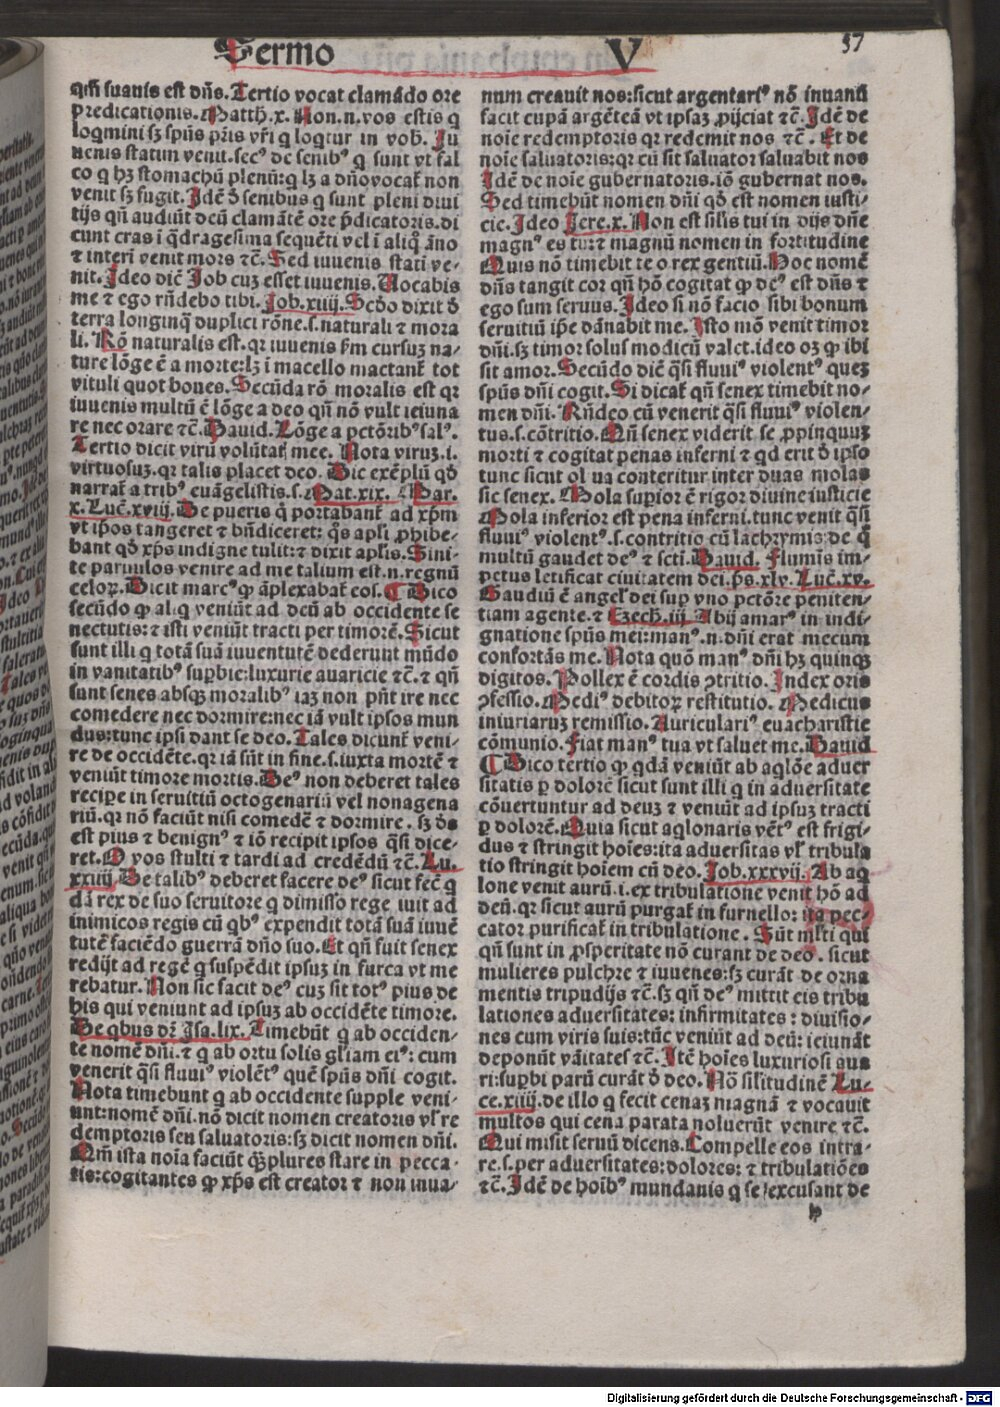 Sermo V 57
qm̄ suauis est dn̄s. Tertio vocat clamādo ore
predicationis. Matth̄. x. Non.n.vos estis q
loqmini sꝫ spūs pr̄is vr̄i q loqtur in vob. Ju
uenis statim venit. secꝰ de senibꝰ q sunt vt fal
co q hꝫ stomachū plenū: q lꝫ a dn̄o vocat̄ non
venit sꝫ fugit. Idē ð senibus q sunt pleni diui
tijs qn̄ audiūt deū clamātē ore p̄dicatoris. di
cunt cras i q̄dragesima sequēti vel i aliq āno
⁊ interi venit mors ⁊c̄. Sed iuuenis stati ve-
nit. Ideo dic̄ Job cuꝫ esset iuuenis. Uocabis
me ⁊ ego rn̄debo tibi. Job. xiiij. Scðo dixit ð
terra longinq̄ duplici rōne. s. naturali ⁊ mora
li. Rō naturalis est. qr iuuenis fm cursuꝫ na-
ture lōge ē a morte: lꝫ i macello mactant̄ tot
vituli quot boues. Secūda rō moralis est qr
iuuenis multū ē lōge a deo qn̄ nō vult ieiuna
re nec orare ⁊c̄. Dauid. Lōge a pctōribꝰ salꝰ.
Tertio dicit virū volūtat̄ mee. Nota viruꝫ. i.
virtuosuꝫ. qr talis placet deo. Dic exēplū qð
narrat̄ a tribꝰ euāgelistis. s. Mat. xix. Mar.
x. Luc̄. xviij. De pueris q̄ portabant̄ ad xp̄m
vt ip̄os tangeret ⁊ bn̄diceret: q̄s apl̄i ꝓhibe-
bant qð xp̄s indigne tulit: ⁊ dixit apl̄is. Sini-
te paruulos venire ad me talium est. n. regnū
celoꝝ. Dicit marcꝰ ꝙ āplexabat̄ eos. ¶ Dico
secūdo ꝙ aliq veniūt ad deū ab occidente se
nectutis: ⁊ isti veniūt tracti per timorē. Sicut
sunt illi q totā suā iuuentutē dederunt mūdo
in vanitatibꝰ suꝑbie: luxurie auaricie ⁊c̄. ⁊ qn̄
sunt senes absqꝫ moralibꝰ iaꝫ non pn̄t ire nec
comedere nec dormire: nec iā vult ipsos mun
dus: tunc ipsi dant se deo. Tales dicunt̄ veni-
re de occidēte. qr iā sūt in fine. s. iuxta mortē ⁊
veniūt timore mortis. Deꝰ non deberet tales
recipe in seruitiū octogenariū vel nonagena
riū. qr nō faciūt nisi comedē ⁊ dormire. sꝫ ðs
est pius ⁊ benignꝰ ⁊ iō recipit ipsos q̄si dice-
ret. O vos stulti ⁊ tardi ad credēdū ⁊c̄. Lu.
xxiiij. De talibꝰ deberet facere deꝰ sicut fec̄ q
dā rex de suo seruitore q dimisso rege iuit ad
inimicos regis cū qbꝰ expendit totā suā iuuē
tutē faciēdo guerrā dn̄o suo. Et qn̄ fuit senex
redijt ad regē q suspēdit ipsuꝫ in furca vt me
rebatur. Non sic facit deꝰ cuꝫ sit totꝰ pius de
his qui veniunt ad ipsuꝫ ab occidēte timore.
De qbus dr̄. Isa. lix. Timebūt q ab occiden-
te nomē dn̄i. ⁊ q ab ortu solis gl̄iam eiꝰ: cum
venerit q̄si fluuiꝰ violētꝰ quē spūs dn̄i cogit.
Nota timebunt q ab occidente supple veni-
unt: nomē dn̄i. nō dicit nomen creatoris vl̄ re
demptoris seu saluatoris: sꝫ dicit nomen dn̄i.
Qm̄ ista noīa faciūt q̄ꝫplures stare in pecca-
tis: cogitantes ꝙ xp̄s est creator ⁊ non inua-
num creauit nos: sicut argentariꝰ nō inuanū
facit cupā argēteā vt ipsaꝫ ꝓijciat ⁊c̄. Idē de
noīe redemptoris qr redemit nos ⁊c̄. Et de
noīe saluatoris: qr cū sit saluator saluabit nos
Idē de noīe gubernatoris. iō gubernat nos.
Sed timebūt nomen dn̄i qð est nomen iusti-
cie. Ideo Jere. x. Non est sil̄is tui in dijs dn̄e
magnꝰ es tu: ⁊ magnū nomen in fortitudine
Quis nō timebit te o rex gentiū. Hoc nomē
dn̄s tangit cor qn̄ hō cogitat ꝙ deꝰ est dn̄s ⁊
ego sum seruus. Ideo si nō facio sibi bonum
seruitiū ip̄e dānabit me. Isto mō venit timor
dn̄i. sꝫ timor solus modicū valet. ideo oꝫ ꝙ ibi
sit amor. Secūdo dic̄ q̄si fluuiꝰ violentꝰ queꝫ
spūs dn̄i cogit. Si dicat̄ qn̄ senex timebit no-
men dn̄i. Rn̄deo cū venerit q̄si fluuiꝰ violen-
tus. s. cōtritio. Qn̄ senex viderit se ꝓpinquuꝫ
morti ⁊ cogitat penas inferni ⁊ qd erit ð ipso
tunc sicut ol ua conteritur inter duas molas
sic senex. Mola suꝑior ē rigor diuine iusticie
Mola inferior est pena inferni. tunc venit q̄si
fluuiꝰ violentꝰ. s. contritio cū lachrymis: de q̄
multū gaudet deꝰ ⁊ scti. Dauid. Flumīs im-
petus letificat ciuitatem dei. ps. xlv. Luc̄. xv.
Gaudiū ē angel̄ dei suꝑ vno pctōre peniten-
tiam agente. ⁊ Ezech̄. iij. Abij amarꝰ in indi-
gnatione spūs mei: manꝰ. n. dn̄i erat mecum
confortās me. Nota quō manꝰ dn̄i hꝫ quinqꝫ
digitos. Pollex ē cordis ꝯtritio. Index oris
ꝯfessio. Mediꝰ debitoꝝ restitutio. Medicus
iniuriaruꝫ remissio. Auriculariꝰ euacharistie
cōmunio. Fiat manꝰ tua vt saluet me. Dauid
¶ Dico tertio ꝙ qdā veniūt ab aqlōe aduer
sitatis ꝑ dolorē sicut sunt illi q in aduersitate
cōuertuntur ad deuꝫ ⁊ veniūt ad ipsuꝫ tracti
ꝑ dolorē. Quia sicut aqlonaris vētꝰ est frigi-
dus ⁊ stringit hoīes: ita aduersitas vl̄ tribula
tio stringit hoīem cū deo. Job. xxxvij. Ab aq
lone venit aurū. i. ex tribulatione venit hō ad
deū. qr sicut aurū purgat̄ in furnello: ita pec-
cator purificat̄ in tribulatione. Sūt ml̄ti qui
qn̄ sunt in ꝓsperitate nō curant de deo. sicut
mulieres pulchre ⁊ iuuenes: sꝫ curāt de orna
mentis tripudijs ⁊c̄. sꝫ qn̄ deꝰ mittit eis tribu
lationes aduersitates: infirmitates: diuisio-
nes cum viris suis: tūc veniūt ad deū: ieiunāt
deponūt vāitates ⁊c̄. Itē hoīes luxuriosi aua
ri: suꝑbi parū curāt ð deo. Nō sil̄itudinē Lu-
ce. xiiij. de illo q fecit cenaꝫ magnā ⁊ vocauit
multos qui cena parata noluerūt venire ⁊c̄.
Qui misit seruū dicens. Compelle eos intra-
re. s. per aduersitates: dolores: ⁊ tribulatiōes
⁊c̄. Idē de hoībꝰ mundanis q se excusant de
h
Digitalisierung gefördert durch die Deutsche Forschungsgemeinschaft - DFG